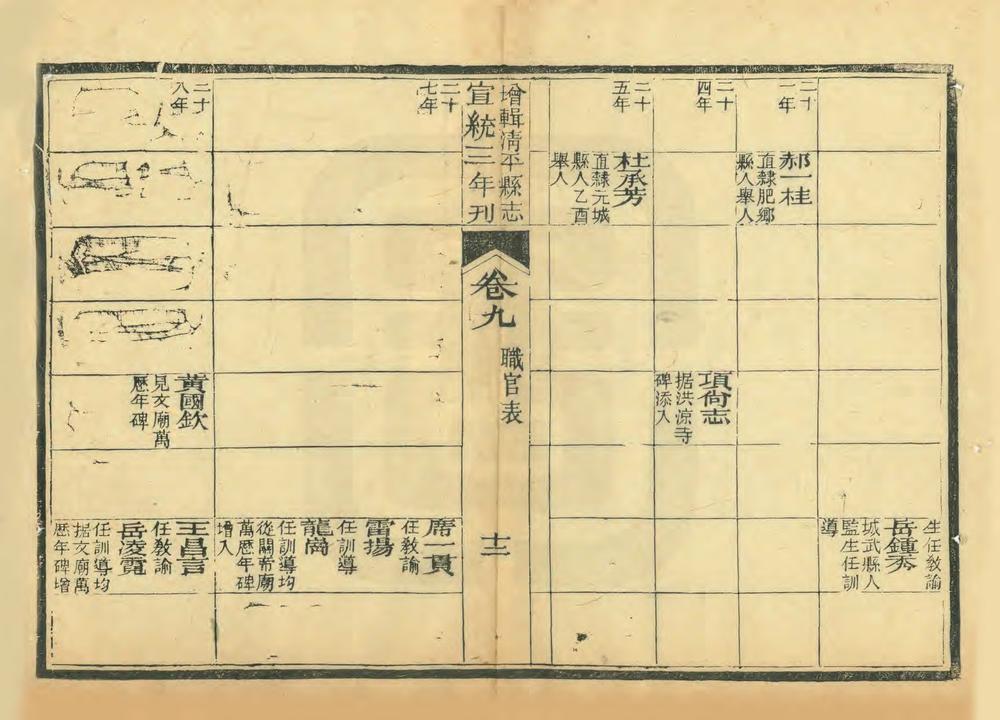 生任教諭
岳鍾秀
城武縣人
監生任訓
導
二十
一年
郝一桂
直隸肥鄉
縣人舉人
二十
四年
項尙志
据洪凉寺
碑添入
二十
五年
杜承芳
直隸元城
縣人乙酉
舉人
增輯清平縣志
宣統三年刊
卷九
職官表
十二
二十
七年
席一貫
任教諭
雷揚
任訓導
龍崗
任訓導均
從關帝廟
萬歷年碑
增入
二十
八年
黃國欽
見文廟萬
歷年碑
王昌言
任教諭
岳凌霓
任訓導均
据文廟萬
歷年碑增